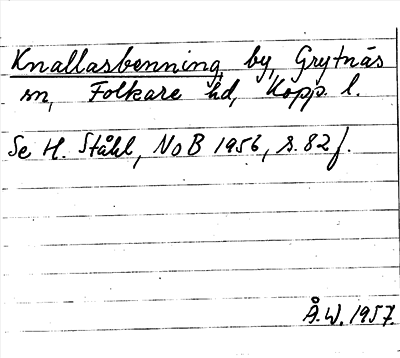 Knallasbenning, by, Grytnäs
sn, Folkare hd, Kopp. l.
Se H. Ståhl, NoB 1956, s. 82 f.
Å.W. 1957.